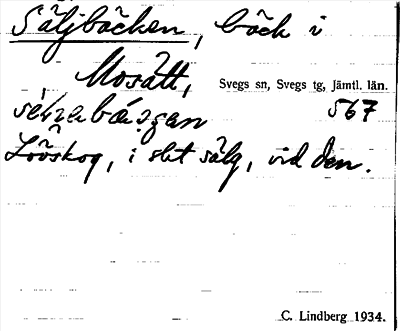 Säljbäcken, bäck i
Mosätt, Svegs sn, Svegs tg, Jämtl. län.
567
Lövskog, i slt sälg, vid den.
C. Lindberg 1934.